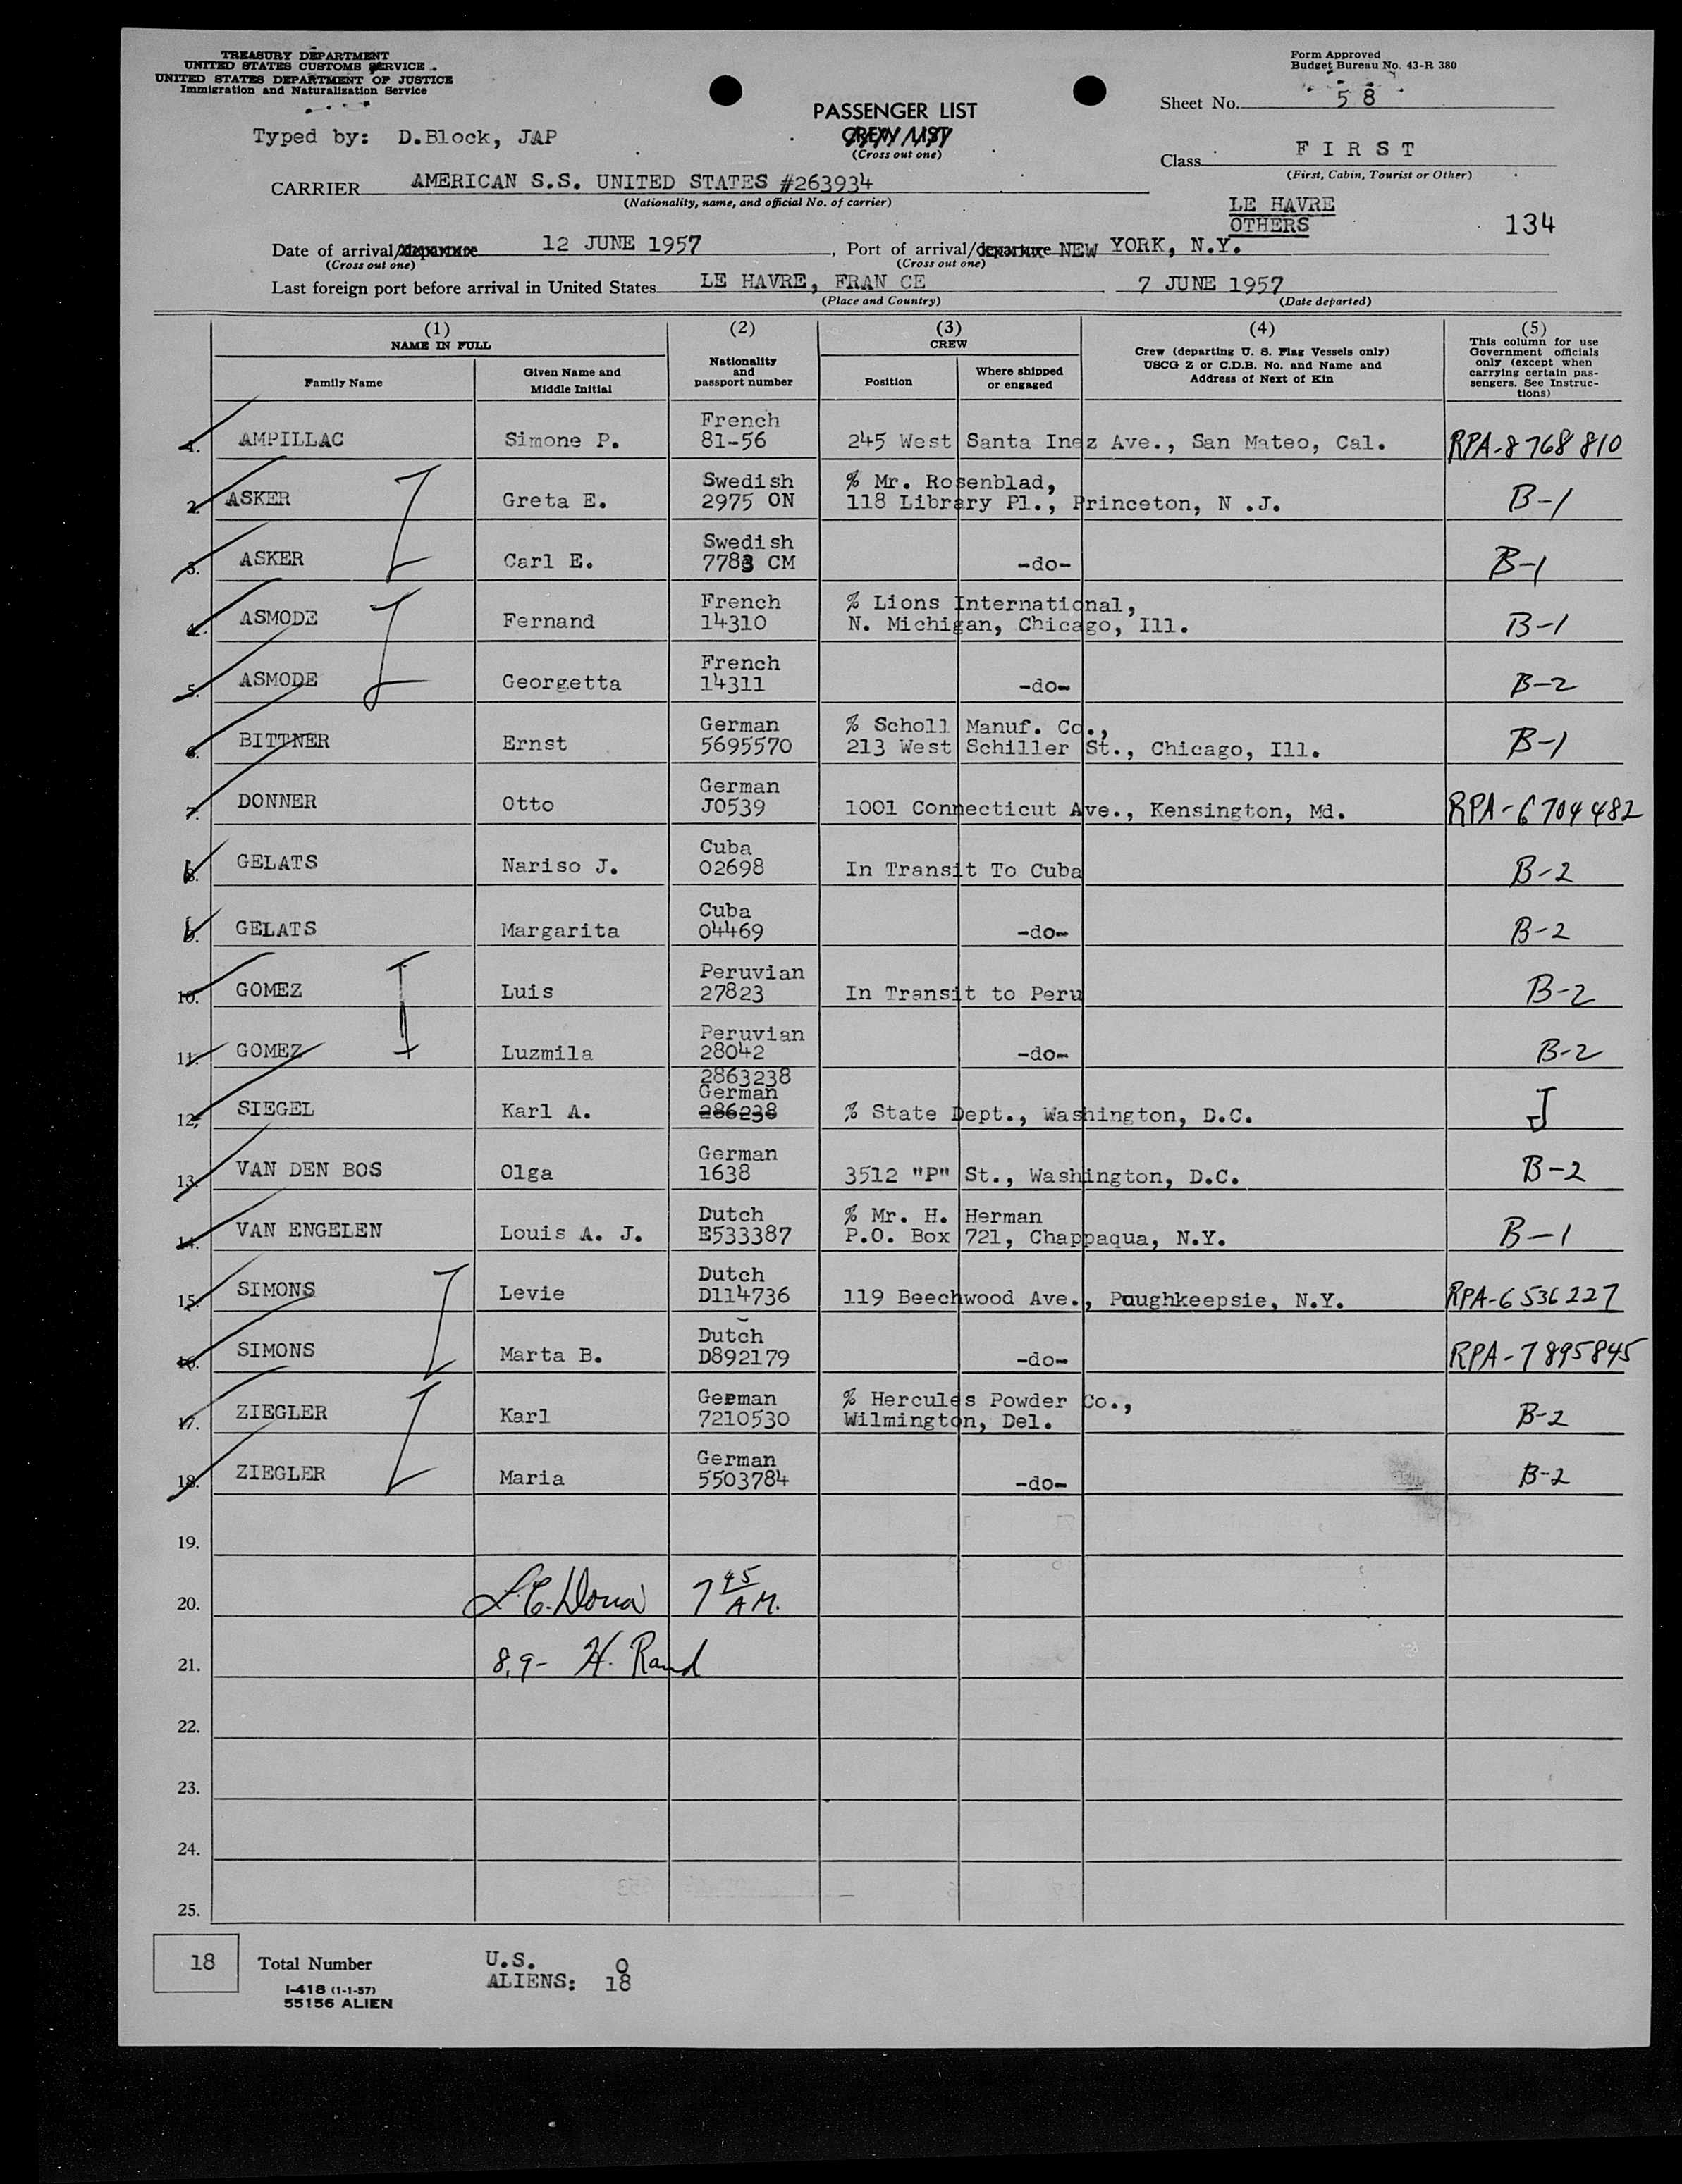 TREASURY DEPARTMENT
UNITED STATES CUSTOMS SERVICE
UNITED STATES DEPARTMENT OF JUSTICE
Immigration and Naturalization Service
Form Approved
Budget Bureau No. 43-R 380
Sheet No. 58
PASSENGER LIST
CREW LIST
(Cross out one)
Typed by: D.Block, JAP
Class FIRST
(First, Cabin, Tourist or Other)
CARRIER AMERICAN S.S. UNITED STATES #263934
(Nationality, name, and official No. of carrier)
LE HAVRE
OTHERS
134
Date of arrival/departure 12 JUNE 1957, Port of arrival/departure NEW YORK, N.Y.
(Cross out one) (Cross out one)
Last foreign port before arrival in United States LE HAVRE, FRAN CE 7 JUNE 1957
(Place and Country) (Date departed)
(1) NAME IN FULL
Family Name
Given Name and Middle Initial
(2) Nationality and passport number
(3) CREW
Position
Where shipped or engaged
(4) Crew (departing U. S. Flag Vessels only) USCG Z or C.D.B. No. and Name and Address of Next of Kin
(5) This column for use Government officials only (except when carrying certain passengers. See Instructions)
1. AMPILLAC Simone P. French 81-56 245 West Santa Inez Ave., San Mateo, Cal. RPA-8768810
2. ASKER Greta E. Swedish 2975 ON % Mr. Rosenblad, 118 Library Pl., Princeton, N .J. B-1
3. ASKER Carl E. Swedish 7783 CM -do- B-1
4. ASMODE Fernand French 14310 % Lions International, N. Michigan, Chicago, Ill. B-1
5. ASMODE Georgetta French 14311 -do- B-2
6. BITTNER Ernst German 5695570 % Scholl Manuf. Co., 213 West Schiller St., Chicago, Ill. B-1
7. DONNER Otto German J0539 1001 Connecticut Ave., Kensington, Md. RPA-6704482
8. GELATS Nariso J. Cuba 02698 In Transit To Cuba B-2
9. GELATS Margarita Cuba 04469 -do- B-2
10. GOMEZ Luis Peruvian 27823 In Transit to Peru B-2
11. GOMEZ Luzmila Peruvian 28042 -do- B-2
12. SIEGEL Karl A. 2863238 German 286238 % State Dept., Washington, D.C. J
13. VAN DEN BOS Olga German 1638 3512 "P" St., Washington, D.C. B-2
14. VAN ENGELEN Louis A. J. Dutch E533387 % Mr. H. Herman P.O. Box 721, Chappaqua, N.Y. B-1
15. SIMONS Levie Dutch D114736 119 Beechwood Ave., Poughkeepsie, N.Y. RPA-6536227
16. SIMONS Marta B. Dutch D892179 -do- RPA-7895845
17. ZIEGLER Karl German 7210530 % Hercules Powder Co., Wilmington, Del. B-2
18. ZIEGLER Maria German 5503784 -do- B-2
19.
20. 7 45 A.M.
21. 8,9- H. Rand
22.
23.
24.
25.
18 Total Number
U.S. 0
ALIENS: 18
I-418 (1-1-57)
55156 ALIEN